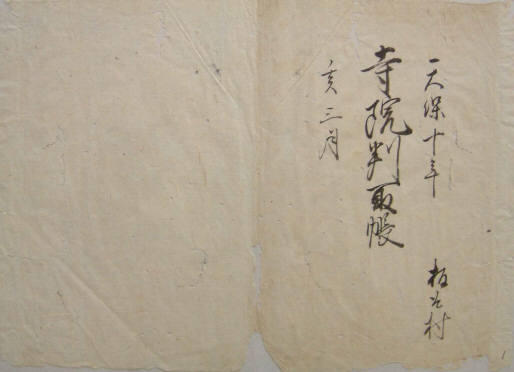 天保十年
村
寺院判取帳
亥三月